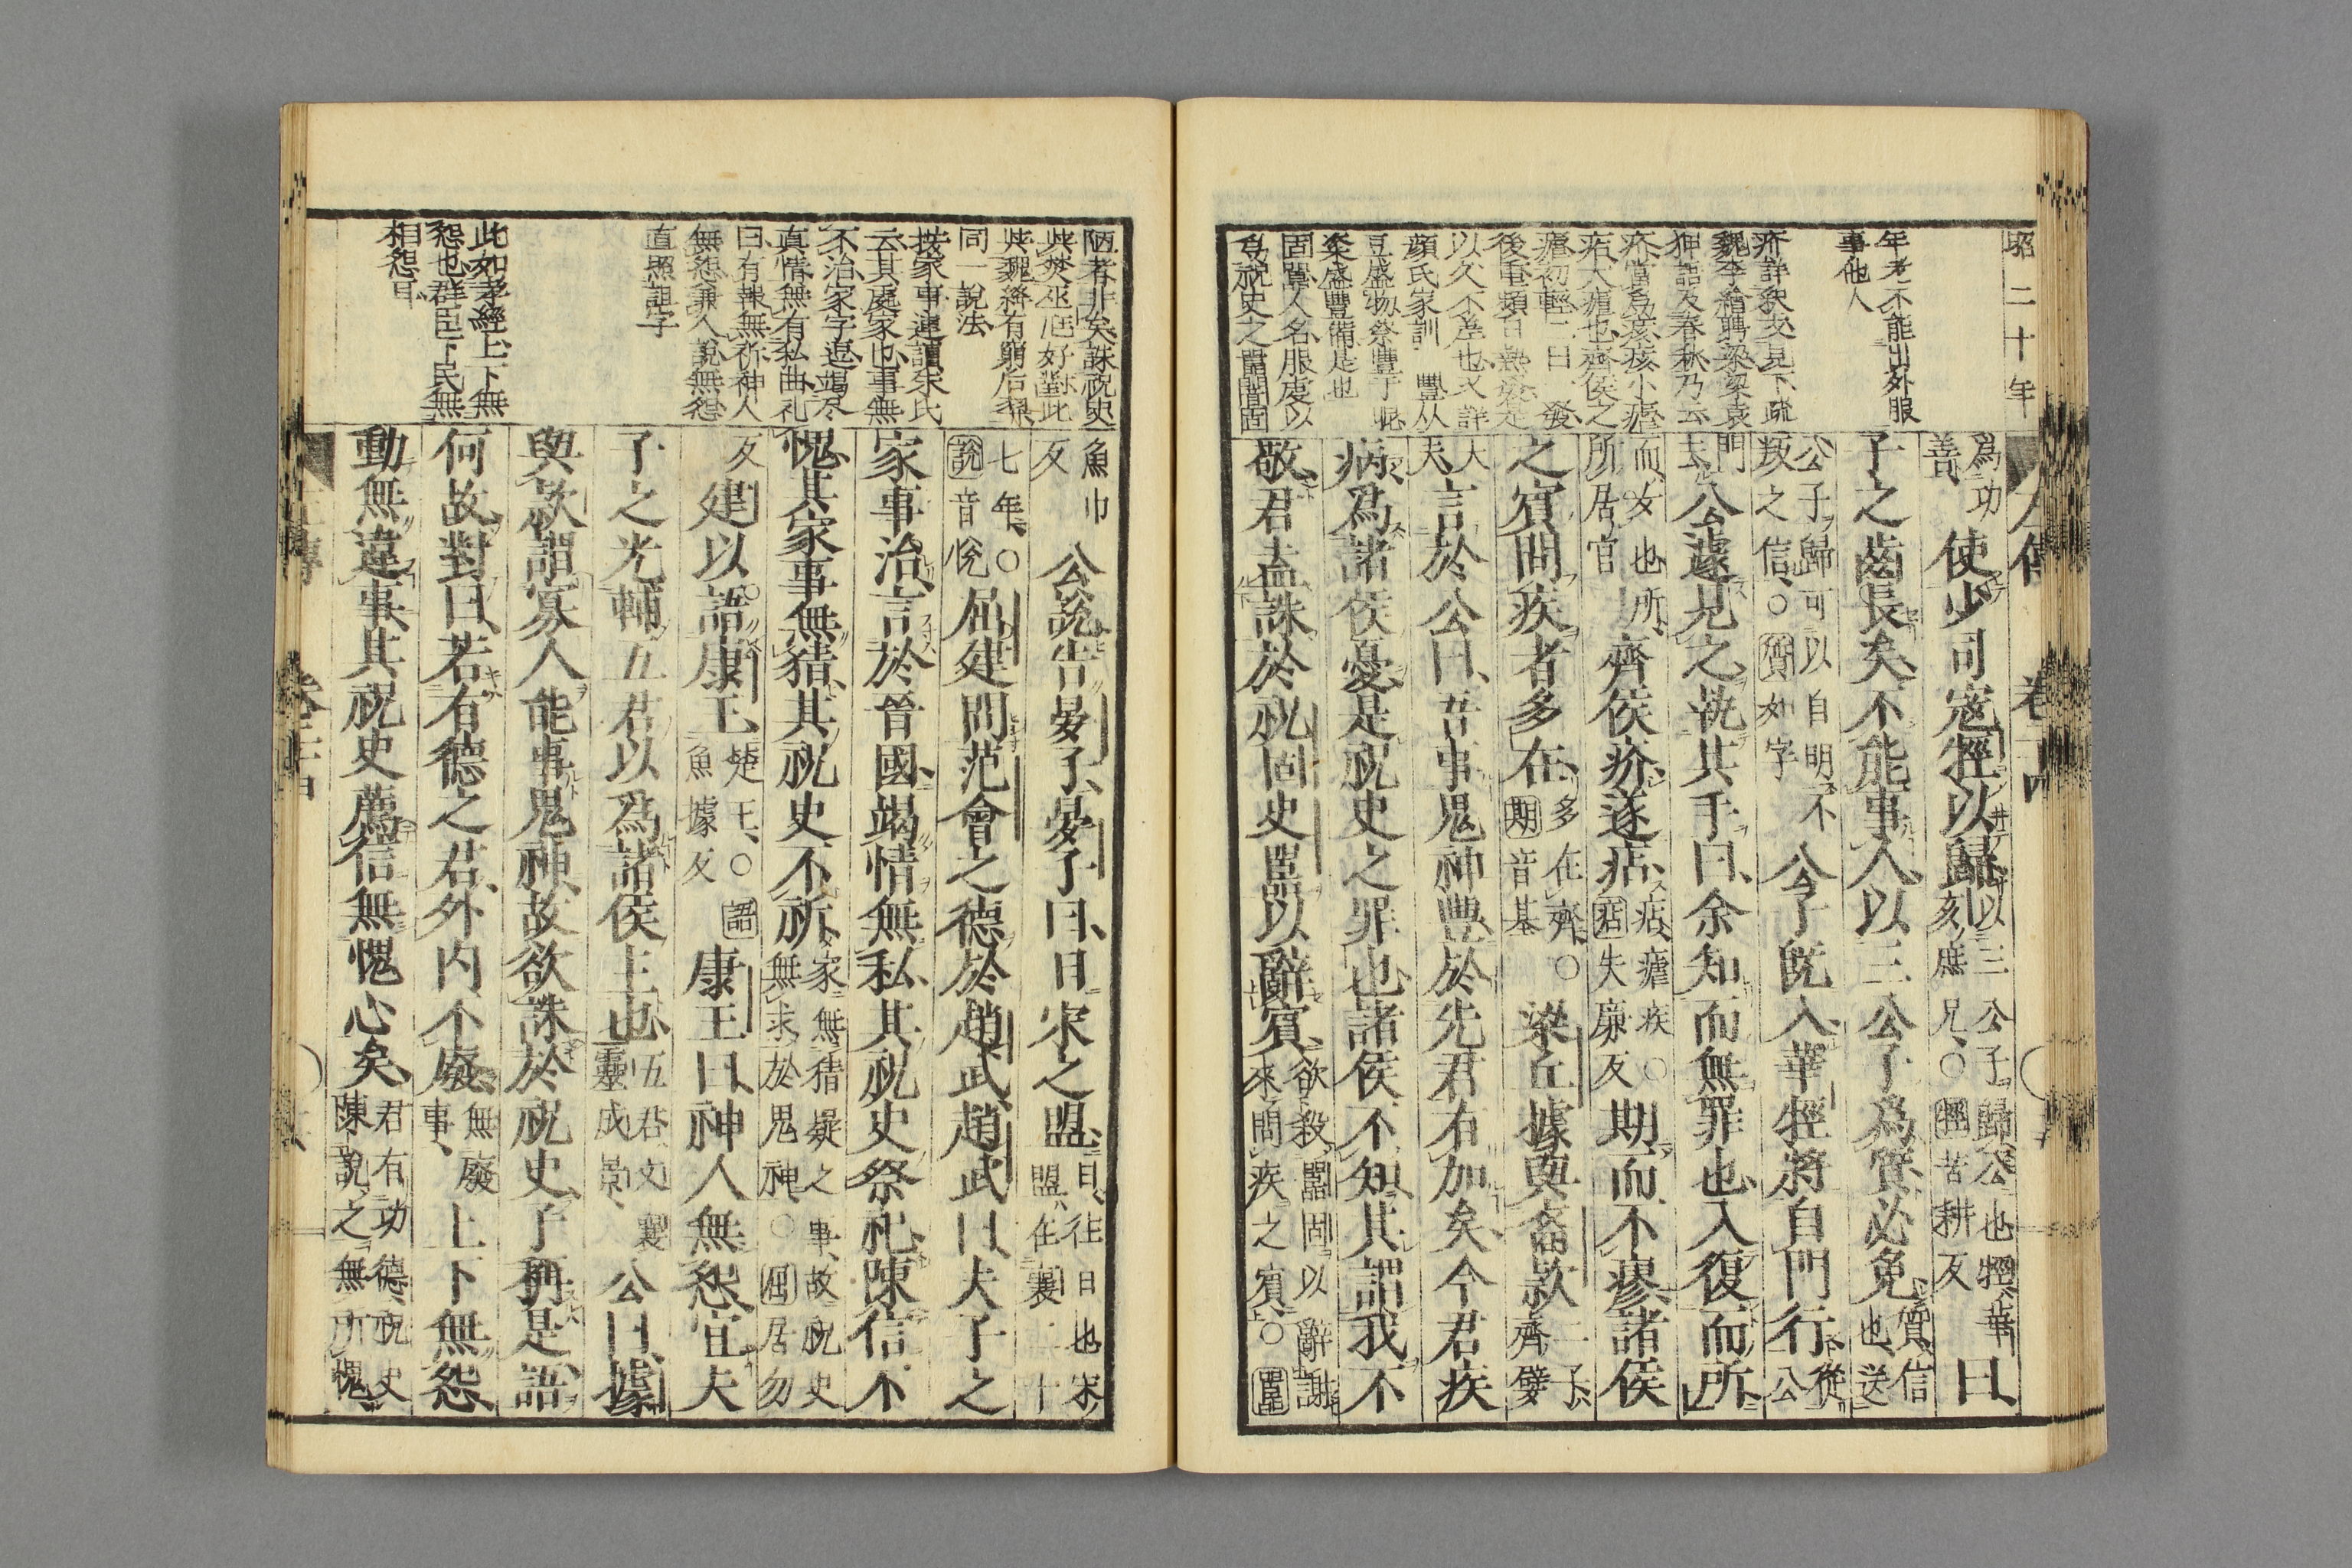 昭二十年
左傳 卷二十四
年老不能出外服
事他人
疥詳釈文見下疏
魏李繪聘梁梁袁
狎語及春秋乃云
疥當爲痎痎小瘧
痁大瘧也齊侯之
瘧初輕二日一發
後重頻日熱發是
以久不差也又詳
顏氏家訓 豐从
豆盛物祭豐于昵
粢盛豐備是也
固嚚人名服虔以
爲祝史之嚚闇固
爲功善、使少司寇牼以歸、以三公子歸公也牼、華亥庶兄、〇牼苦耕反曰、
子之齒長矣、不能事人、以三公子爲質必免、質、信也、送
公子歸可以自明不叛之信、〇質如字公子旣入華牼將自門行、從公
門去、公遽見之執其手曰、余知而無罪也、入復而所、
而、女也、所、所居官齊侯疥遂痁、痁、瘧疾〇痁失廉反期而不瘳諸侯
之賓問疾者多在、多在齊、〇期音基梁丘據與裔款二子、齊嬖
大夫言於公曰、吾事鬼神豐、於先君有加矣、今君疾
病、爲諸侯憂是祝史之罪也諸侯不知、其謂我不
敬、君盍誅於祝固史嚚以辭賓、欲殺嚚固以辭謝來問疾之賓、〇嚚
魚巾反公說告晏子、晏子曰、日宋之盟、日、往日也宋盟、在襄二十
七年、〇說音悅屈建問范會之德於趙武、趙武曰、夫子之
家事治、言於晉國、竭情無私、其祝史祭祀陳信不
愧、其家事無猜、其祝史不祈、家無猜疑之事、故祝史無求於鬼神、〇屈居勿
反建以語康王、楚王、〇語魚據反康王曰、神人無怨、宜夫
子之光輔五君以爲諸侯主也、五君文襄靈成景、公曰、據
與款謂寡人能事鬼神、故欲誅於祝史、子稱是語、
何故對曰、若有德之君、外內不廢、無廢事、上下無怨
動無違事、其祝史薦信無愧心矣、君有功德、祝史陳說之無所愧、
陋者非矣誅祝史
與焚巫尫好對此
與魏絳有窮后羿
同一說法
按家事連讀朱氏
云其處家也事無
不治家字逗竭尽
真情無有私曲礼
曰有報無祈神人
無怨兼人說無怨
直照詛字
此如孝經上下無
怨也群臣下民無
相怨曰